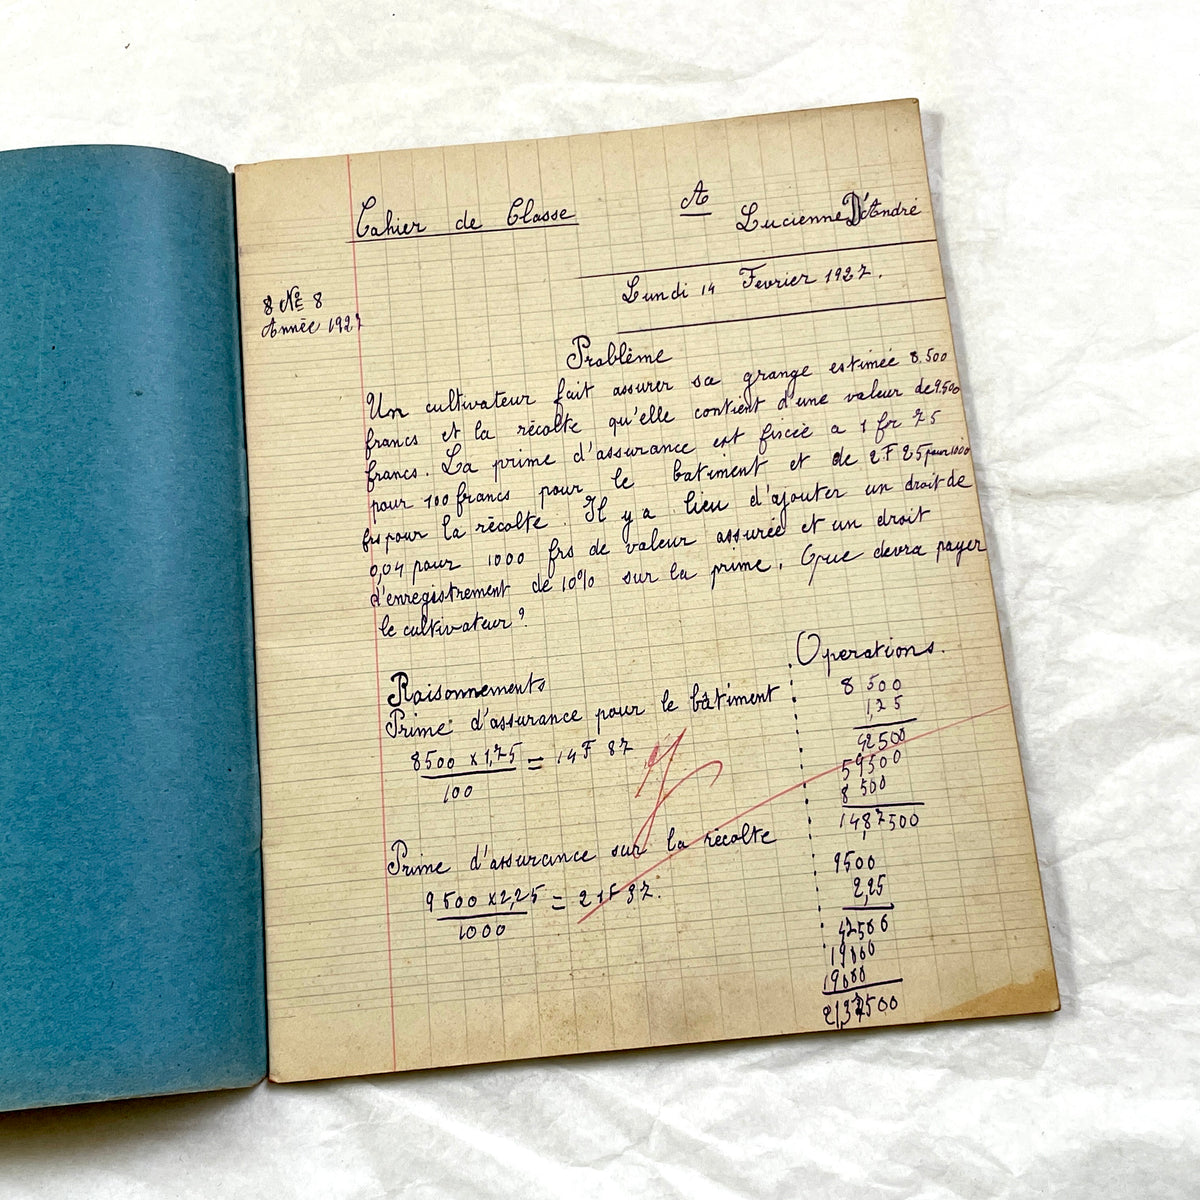 Cahier de Classe
A
Lucienne D'André
Lundi 14 Fevrier 1927.
8 No 8
Année 1927
Problème
Un cultivateur fait assurer sa grange estimée 8.500
francs et la récolte qu'elle contient d'une valeur de 9.500
francs. La prime d'assurance est fixcée a 1 fr 75
pour 100 francs pour le batiment et de 2F 25 pour 1000
frs pour la récolte. Il y a lieu d'ajouter un droit de
0,04 pour 1000 frs de valeur assurée et un droit
d'enregistrement de 10% sur la prime. Que devra payer
le cultivateur?
Raisonnements
Prime d'assurance pour le bâtiment
8500 x 1,75 = 14F 87
100
Prime d'assurance sur la récolte
9500 x 2,25 = 21F 37.
1000
Operations.
8 500
1,75
42500
59500
8 500
148,7500
9500
2,25
47500
19000
19000
21,37500